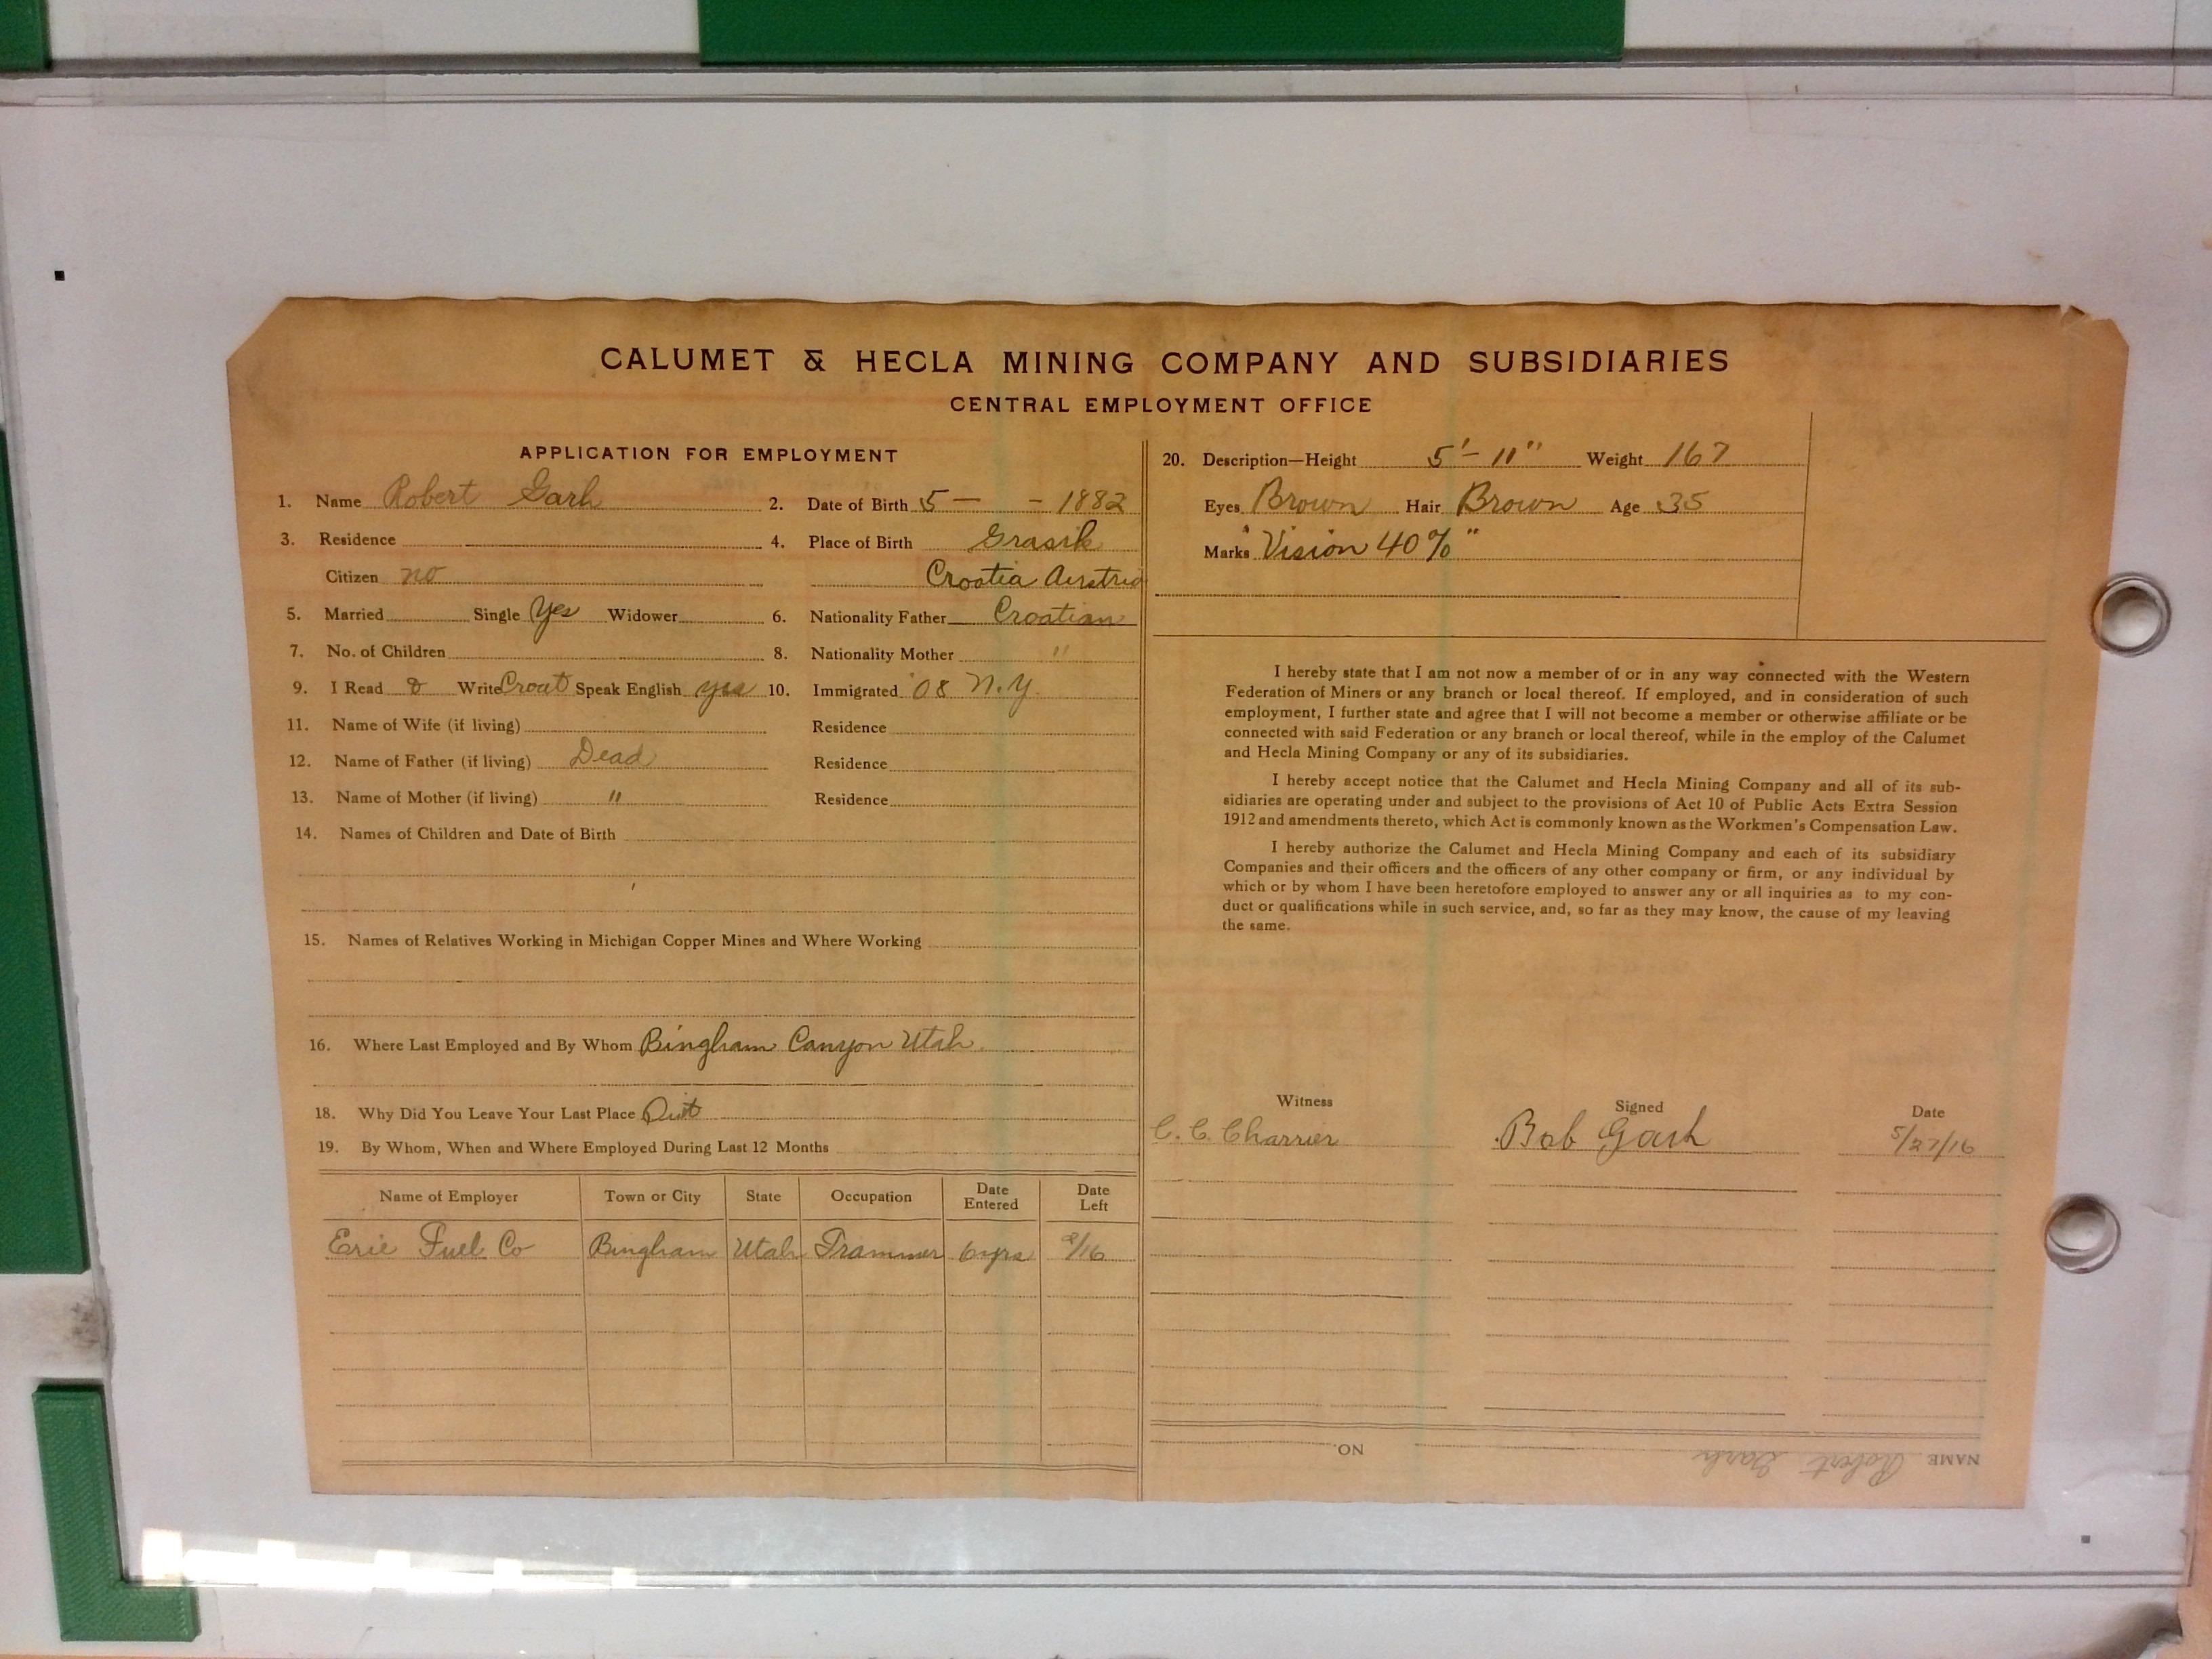 CALUMET & HECLA MINING COMPANY AND SUBSIDIARIES
CENTRAL EMPLOYMENT OFFICE
APPLICATION FOR EMPLOYMENT
1. Name Robert Garh
2. Date of Birth 5 — - 1882
3. Residence
4. Place of Birth Grasik
Citizen no
Croatia Austria
5. Married Single Yes Widower
6. Nationality Father Croatian
7. No. of Children
8. Nationality Mother "
9. I Read & Write Croat Speak English yes
10. Immigrated '08 N.Y.
11. Name of Wife (if living) Residence
12. Name of Father (if living) Dead Residence
13. Name of Mother (if living) " Residence
14. Names of Children and Date of Birth
15. Names of Relatives Working in Michigan Copper Mines and Where Working
16. Where Last Employed and By Whom Bingham Canyon Utah.
18. Why Did You Leave Your Last Place Quit
19. By Whom, When and Where Employed During Last 12 Months
Name of Employer Town or City State Occupation Date Entered Date Left
Erie Fuel Co Bingham Utah Trammer 6 yrs /16
20. Description—Height 5'- 11" Weight 167
Eyes Brown Hair Brown Age 35
Marks "Vision 40%"
I hereby state that I am not now a member of or in any way connected with the Western
Federation of Miners or any branch or local thereof. If employed, and in consideration of such
employment, I further state and agree that I will not become a member or otherwise affiliate or be
connected with said Federation or any branch or local thereof, while in the employ of the Calumet
and Hecla Mining Company or any of its subsidiaries.
I hereby accept notice that the Calumet and Hecla Mining Company and all of its sub-
sidiaries are operating under and subject to the provisions of Act 10 of Public Acts Extra Session
1912 and amendments thereto, which Act is commonly known as the Workmen's Compensation Law.
I hereby authorize the Calumet and Hecla Mining Company and each of its subsidiary
Companies and their officers and the officers of any other company or firm, or any individual by
which or by whom I have been heretofore employed to answer any or all inquiries as to my con-
duct or qualifications while in such service, and, so far as they may know, the cause of my leaving
the same.
Witness Signed Date
C. C. Charrier Bob Garh 5/27/16
NAME Robert Garh NO.